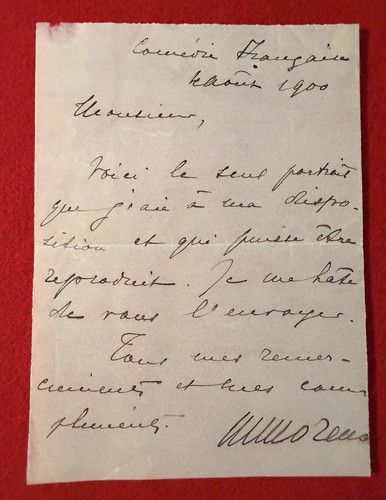 Comédie Française
Août 1900
Monsieur,
Voici le seul portrait
que j'aie à ma dispo-
sition et qui puisse être
reproduit. Je me hâte
de vous l'envoyer.
Tous mes remer-
ciements et mes com
pliments.
Moreno